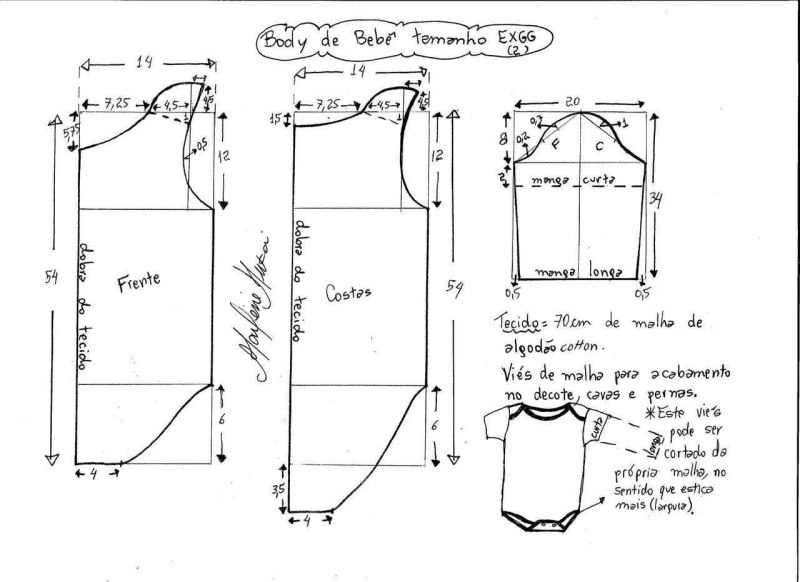 Body de Bebê tamanho EXGG
(2)
14
7,25
4,5
4,5
1
5,75
0,5
12
54
dobra do tecido
Frente
6
4
14
7,25
4,5
4,5
1
1,5
12
dobra do tecido
Costas
54
6
3,5
4
20
0,7
1
0,2
8
F
C
2
manga curta
34
manga longa
0,5
0,5
Tecido = 70cm de malha de
algodão cotton.
Viés de malha para acabamento
no decote, cavas e pernas.
*Este viés
pode ser
cortado da
própria malha, no
sentido que estica
mais (largura).
curta
longa